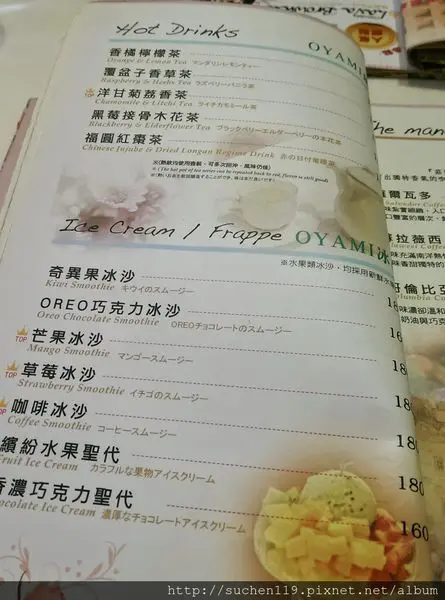 Hot Drinks
OYAMI
香橘檸檬茶
Orange & Lemon Tea マンダリンレモンティー
覆盆子香草茶
Raspberry & Herbs Tea ラズベリーバニラ茶
洋甘菊荔香茶
Chamomile & Litchi Tea ライチカモミール茶
黑莓接骨木花茶
Blackberry & Elderflower Tea ブラックベリーエルダーベリーの木花茶
福圓紅棗茶
Chinese Jujube & Dried Longan Regime Drink
Ice Cream / Frappe
OYAMI冰
※水果類冰沙，均採用新鮮水
奇異果冰沙
Kiwi Smoothie キウイのスムージー
OREO巧克力冰沙
Oreo Chocolate Smoothie OREOチョコレートのスムージー
TOP
芒果冰沙
Mango Smoothie マンゴースムージー
TOP
草莓冰沙 180
Strawberry Smoothie イチゴのスムージー
咖啡冰沙 180
Coffee Smoothie コーヒースムージー
繽紛水果聖代 180
Fruit Ice Cream カラフルな果物アイスクリーム
香濃巧克力聖代 160
Chocolate Ice Cream 濃厚なチョコレートアイスクリーム
The man
http://suchen119.pixnet.net/album